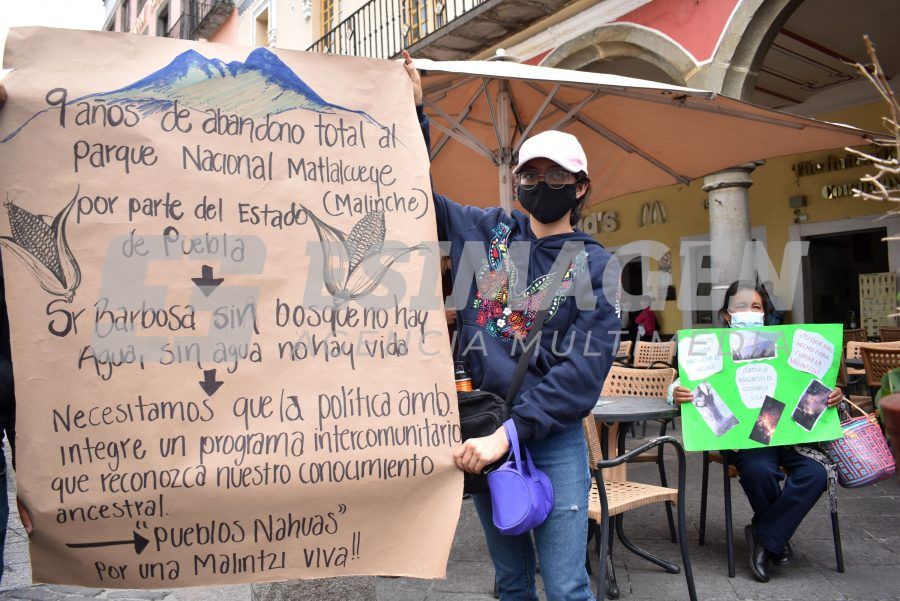 9 años de abandono total al
Parque Nacional Matlalcueye
por parte del Estado (Malinche)
de Puebla
Sr Barbosa sin bosque no hay
Agua, sin agua no hay vida
Necesitamos que la política amb.
integre un programa intercomunitario
que reconozca nuestro conocimiento
ancestral.
"Pueblos Nahuas"
Por una Malintzi viva!!
ESIMAGEN
AGENCIA MULTIMEDIA
CUIDAR LA
MALINTZIN
ES CUIDAR LA
VIDA
Y TU QUE HAS
HECHO PARA
CUIDAR LA
MALINTZIN?